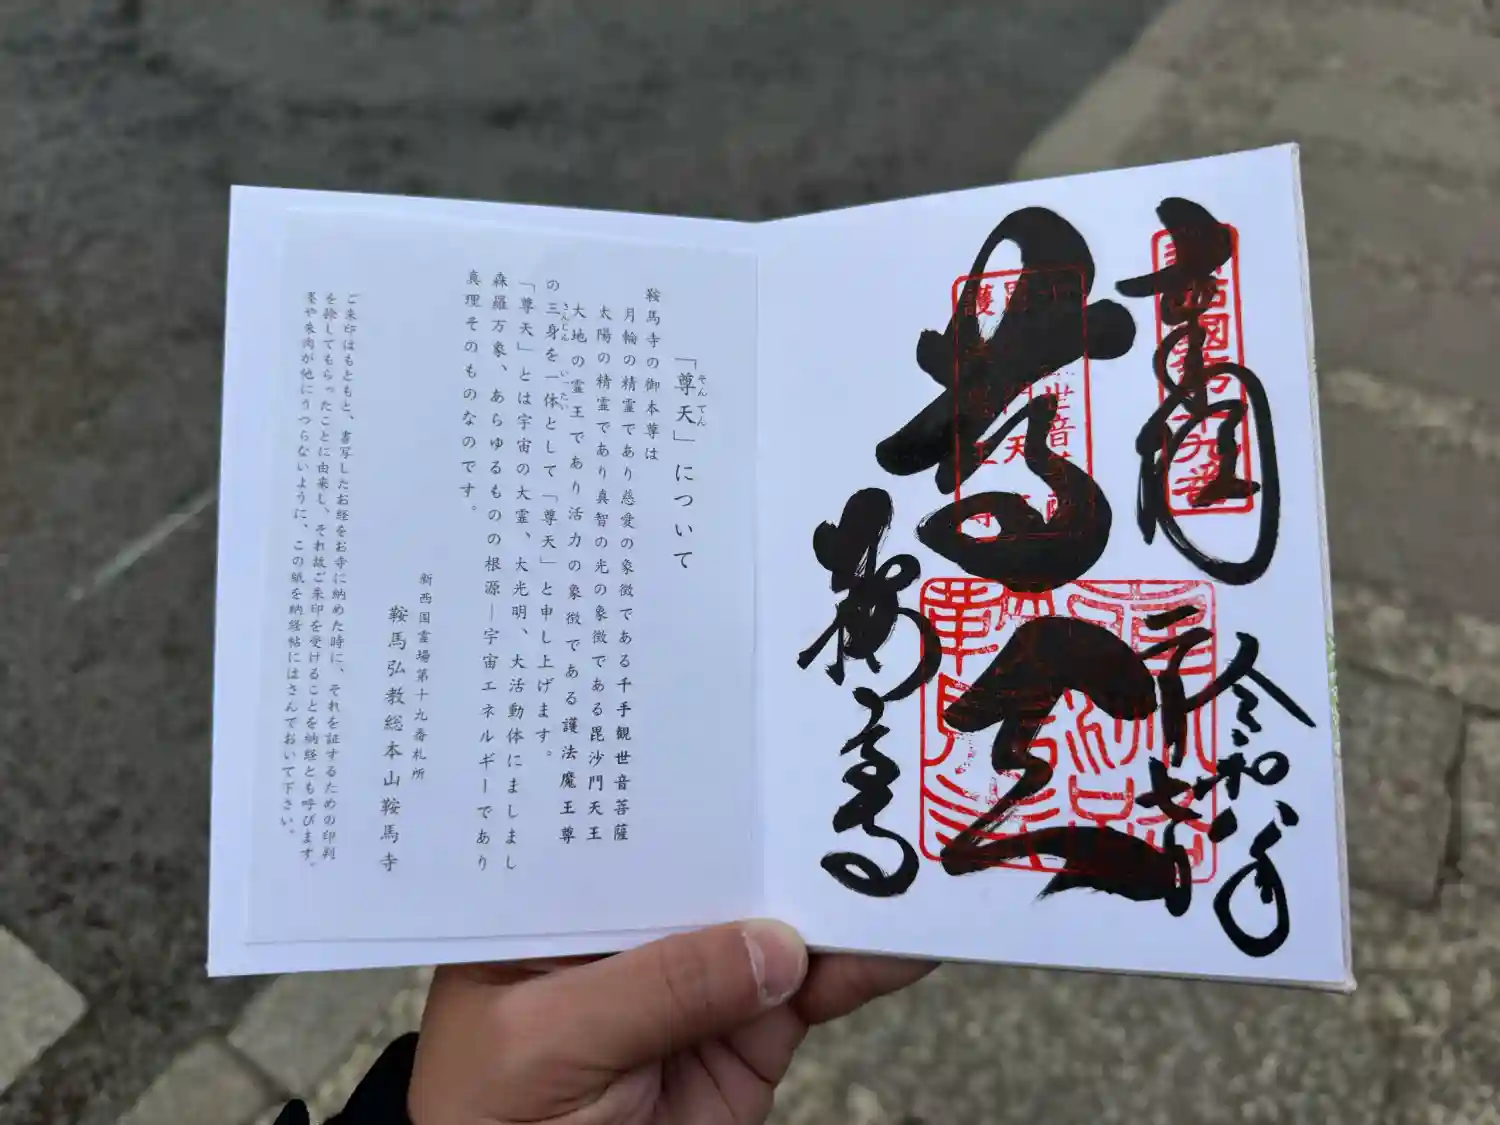 奉拝
新西國第十九番
令和八年
尊天
鞍馬寺
「尊天」について
そんてん
鞍馬寺の御本尊は
月輪の精霊であり慈愛の象徴である千手観世音菩薩
太陽の精霊であり真智の光の象徴である毘沙門天王
大地の霊王であり活力の象徴である護法魔王尊
の三身を一体として「尊天」と申し上げます。
さんじん いったい
「尊天」とは宇宙の大霊、大光明、大活動体にましまし
森羅万象、あらゆるものの根源―宇宙エネルギーであり
真理そのものなのです。
新西国霊場第十九番札所
鞍馬弘教総本山鞍馬寺
ご朱印はもともと、書写したお経をお寺に納めた時に、それを証するための印判
を捺してもらったことに由来し、それ故ご朱印を受けることを納経とも呼びます。
墨や朱肉が他にうつらないように、この紙を納経帖にはさんでおいて下さい。